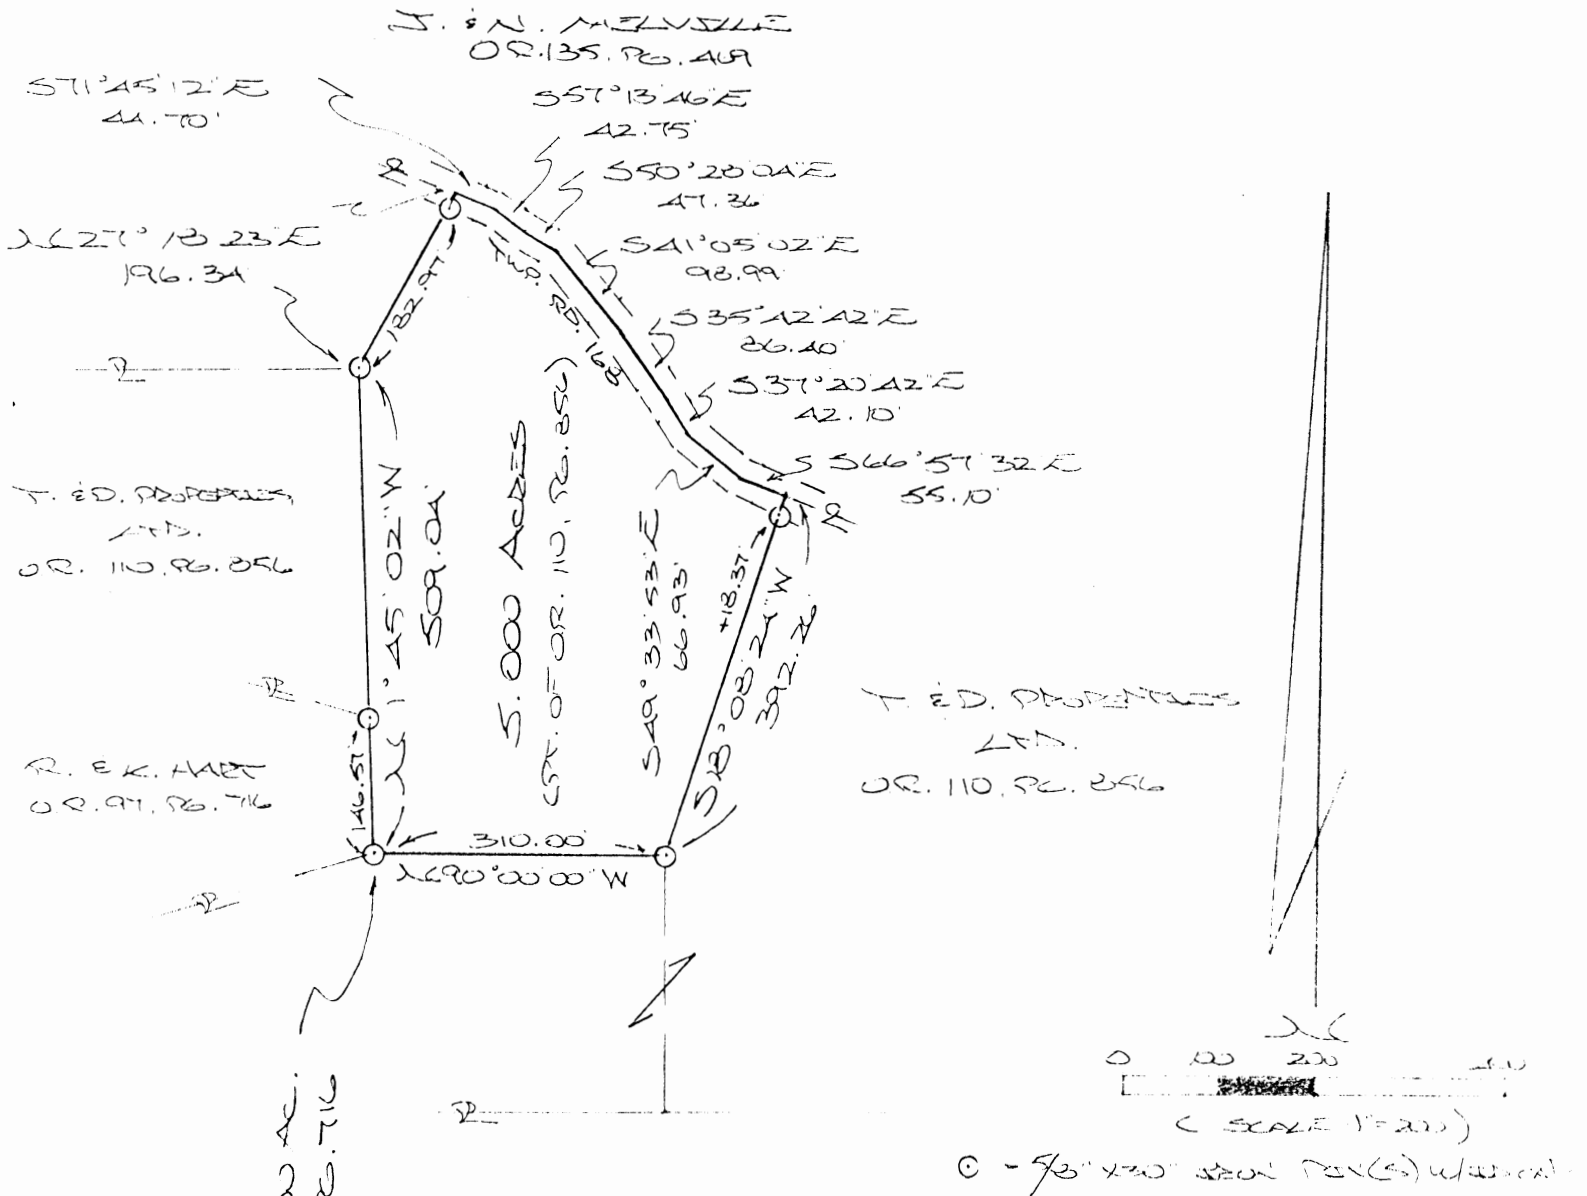 J. & N. MELVILLE
O.R. 135. PG. 469
S71°45'12"E
44.70'
S57°13'46"E
42.75'
S50°28'04"E
47.36'
N27°18'23"E
196.34
S41°05'02"E
98.99'
S35°42'42"E
86.40'
S37°20'42"E
42.10'
S66°57'32"E
55.10'
182.97'
TWP. RD. 168
T. & D. PROPERTIES,
LTD.
OR. 110. PG. 856
N 1°45'02"W
509.04'
5.000 ACRES
(PT. OF OR. 110, PG. 856)
S49°33'53"E
66.93'
S18°08'24"W
392.26'
T. & D. PROPERTIES
LTD.
OR. 110. PG. 856
R. & K. HART
O.R. 97. PG. 716
146.57'
310.00'
N90°00'00"W
AC.
716
N
0 100 200
(SCALE 1"=200')
⊙ - 5/8" X 30" IRON PIN(S)